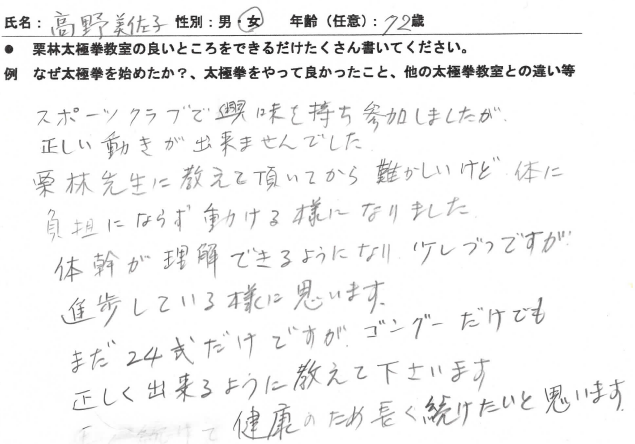 氏名：高野美佐子 性別：男・女 年齢（任意）：72歳
● 栗林太極拳教室の良いところをできるだけたくさん書いてください。
例 なぜ太極拳を始めたか？、太極拳をやって良かったこと、他の太極拳教室との違い等
スポーツクラブで興味を持ち参加しましたが、
正しい動きが出来ませんでした。
栗林先生に教えて頂いてから難かしいけど体に
負担にならず動ける様になりました。
体幹が理解できるようになり、少しづつですが
進歩している様に思います。
まだ24式だけですが、ゴングーだけでも
正しく出来るように教えて下さいます
健康のため長く続けたいと思います。